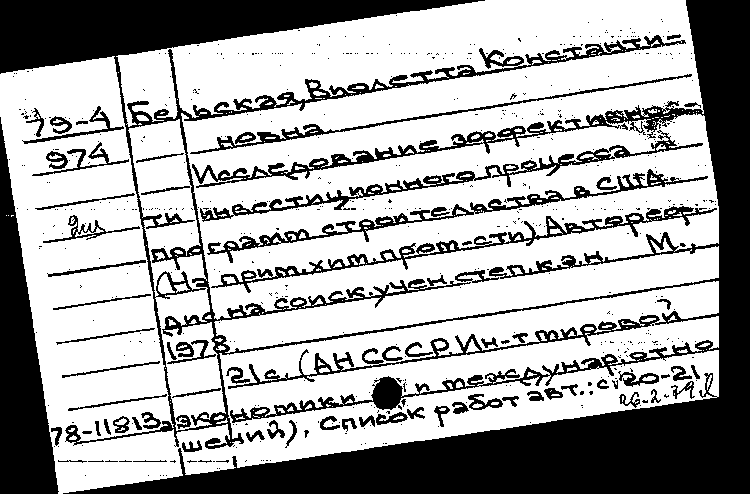 79-4 Бельская, Виолетта Константи-
974 новна.
Исследование эффективнос-
ти инвестиционного процесса и
программ строительства в США.
(На прим. хим. пром-сти). Автореф.
дис. на соиск. учен. степ. к.э.н. М.,
1978.
21с. (АН СССР. Ин-т мировой
78-11813 экономики и междунар. отно
шений). Список работ авт.: с. 20-21
26.2.79